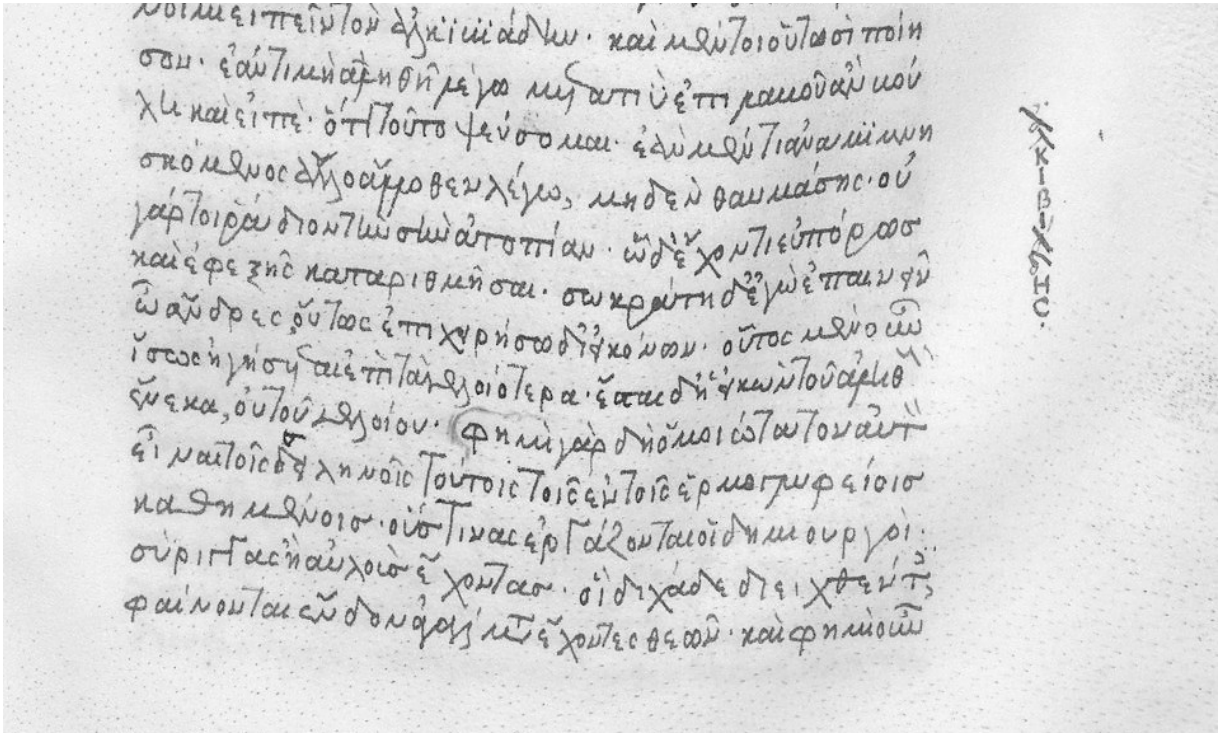 νοιμι εἰπεῖν τὸν ἀλκιβιάδην· καὶ μέντοι οὑτωσὶ ποίη
σον· ἐάν τι μὴ ἀληθὲς λέγω μεταξὺ ἐπιλαβοῦ ἂν βού
λη καὶ εἰπὲ· ὅτι τοῦτο ψεύδομαι· ἐὰν μέντι ἀναμιμνη
σκόμενος ἄλλο ἄλλοθεν λέγω, μηδὲν θαυμάσης· οὐ
γάρ τοι ῥάδιον τὴν σὴν ἀτοπίαν· ὧδ' ἔχοντι εὐπόρως
καὶ ἐφεξῆς καταριθμῆσαι· σωκράτη δ' ἐγὼ ἐπαινεῖν
ὦ ἄνδρες οὕτως ἐπιχειρήσω δι' εἰκόνων· οὗτος μὲν οὖν
ἴσως οἰήσεται ἐπὶ τὰ γελοιότερα· ἔσται δ' ἡ εἰκὼν τοῦ ἀληθοῦς
ἕνεκα, οὐ τοῦ γελοίου· φημὶ γὰρ δὴ ὁμοιότατον αὐτὸν
εἶναι τοῖς σειληνοῖς τούτοις τοῖς ἐν τοῖς ἑρμογλυφείοισ
καθημένοισ· οὕστινας ἐργάζονται οἱ δημιουργοὶ·
σύριγγας ἢ αὐλοὺς ἔχοντασ· οἳ διχάδε διειχθέντες
φαίνονται ἔνδοθεν ἀγάλματα ἔχοντες θεῶν· καὶ φημὶ οὖν
ἀλκιβιάδης·